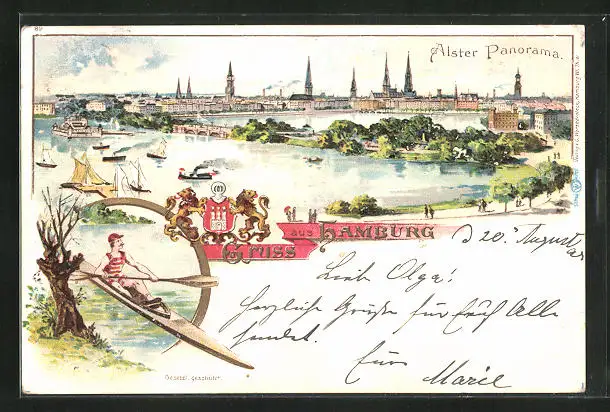 89
Alster Panorama.
Gruss aus Hamburg
D 20. August
Lieb Olga!
Herzliche Grüße für Euch Alle
sendet
Eure
Marie
Gesetzl. geschützt.